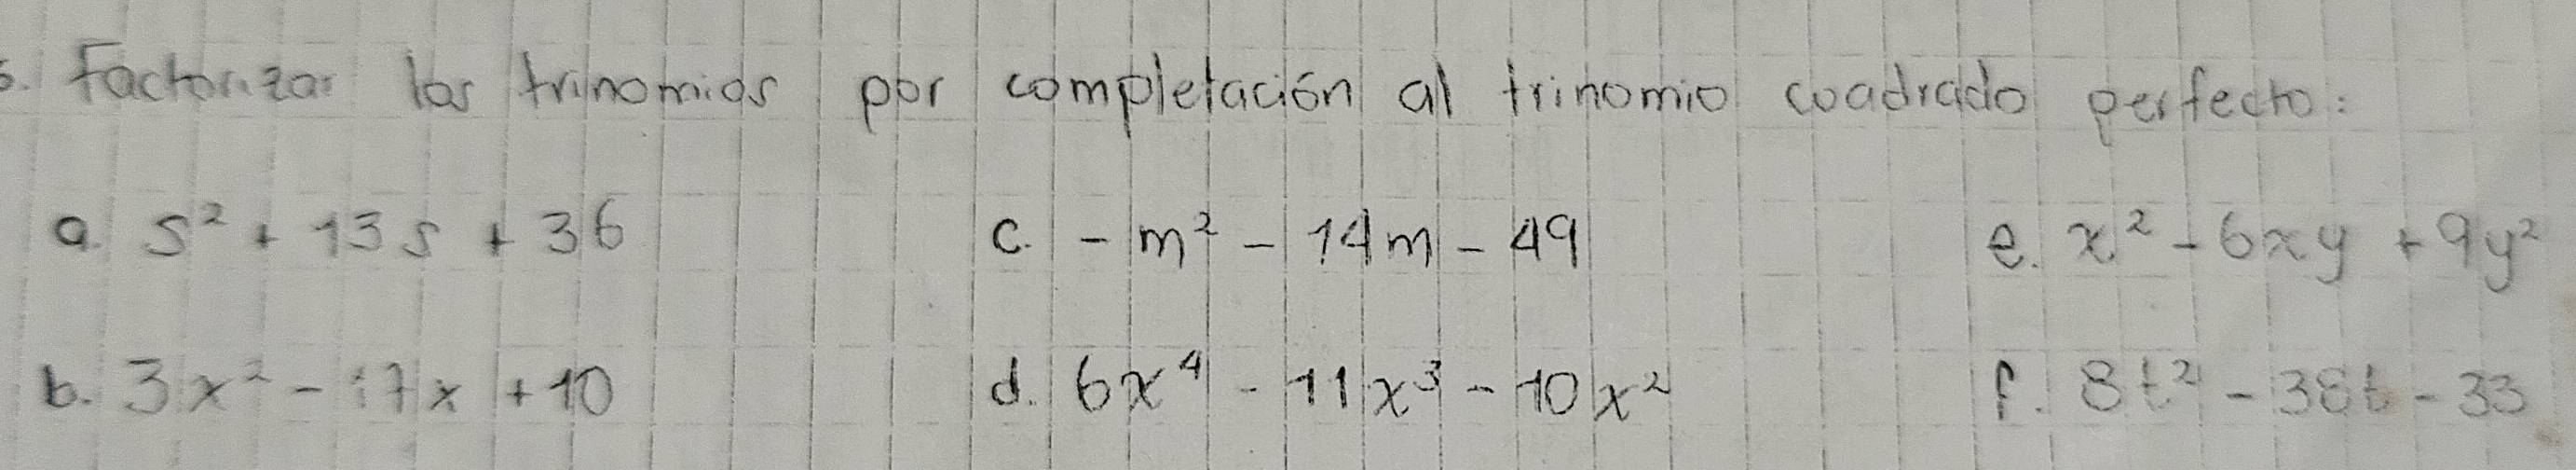 5. Factorizar los trinomios por completación al trinomio coadrado perfecto:
a. s² + 13s + 36 c. - m² - 14m - 49 e. x² - 6xy + 9y²
b. 3x² - 17x + 10 d. 6x⁴ - 11x³ - 10x² f. 8t² - 38t - 33